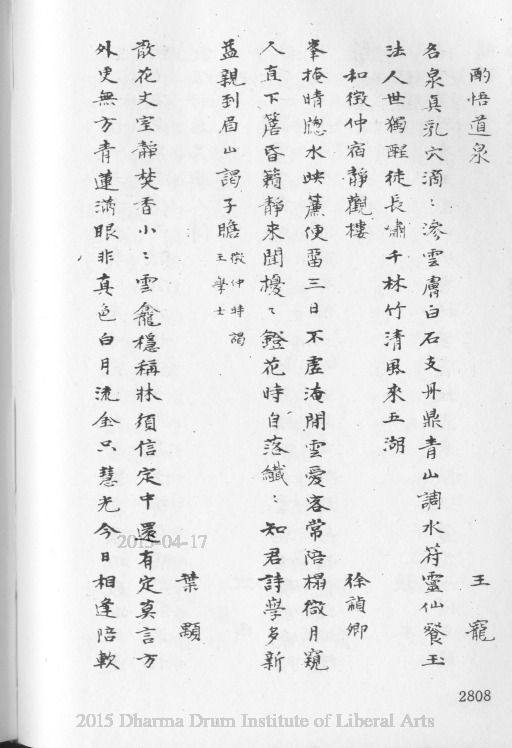 酌悟道泉 王寵
名泉真乳穴滴:滲雲膚白石支丹鼎青山調水符靈仙餐玉
法人世獨醒徒長嘯千林竹清風來五湖
和徵仲宿靜觀樓 徐禎卿
峯掩晴牕水映簾便畱三日不虛淹閒雲愛客常陪榻微月窺
人直下簷昏籟靜來聞櫌〻鐙花時自落纖:知君詩學多新
益親到眉山謁子瞻 徵仲時謁
王學士
葉顒
散花丈室靜焚香小:雲龕穩稱牀須信定中還有定莫言方
外更無方青蓮滿眼非真色白月流金只慧光今日相逢陪軟
2015-04-17
2808
2015 Dharma Drum Institute of Liberal Arts